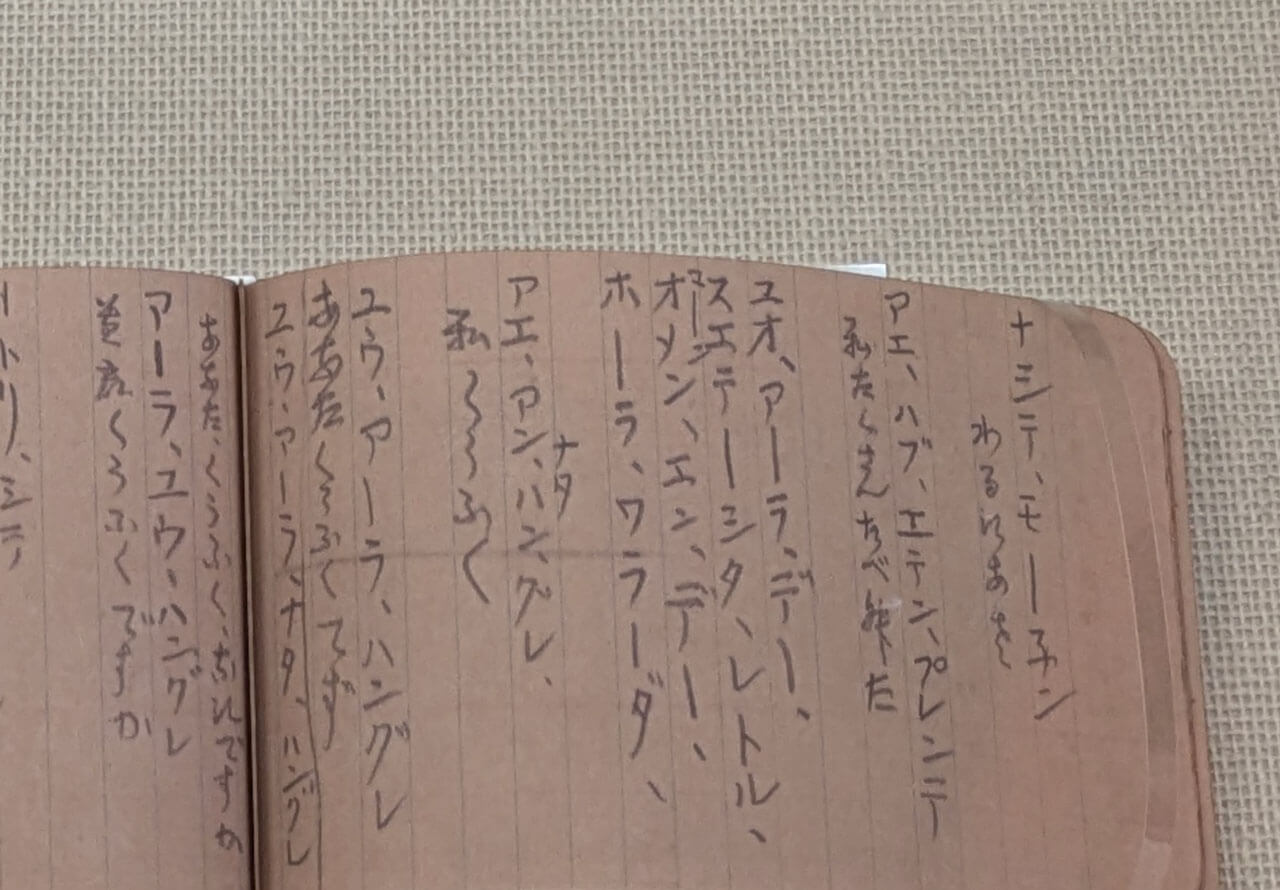 ナシテ、モーチン
わるいあさ
アエ、ハブ、エテン、プレンテ
私たくさんたべました
ユオ、アーラ、デー、
ステーシタ、レトル、
オメン、エン、デー、
ホーラ、ワラーダ、
ナタ
アエ、アン、ハン、グレ、
私くうふく
ユウ、アーラ、ハングレ
ああたくうふくてず
ユウ、アーラ、ナタ、ハングレ
ああた、くうふく、ないですか
アーラ、ユウ、ハングレ
くうふくですか